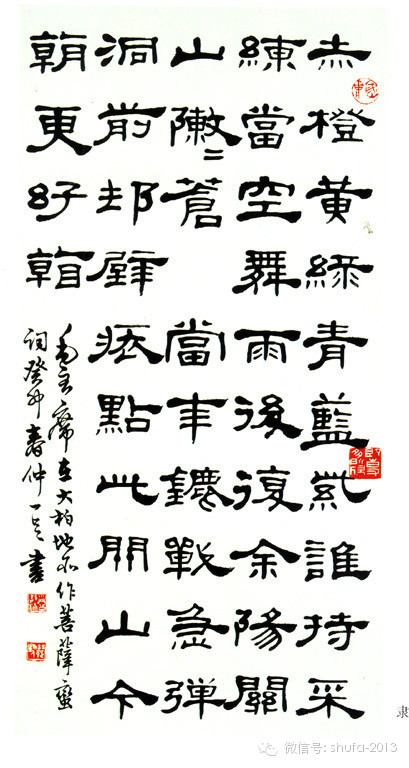 赤橙黄緑青藍紫誰持采
練當空舞雨後復余陽關
山陣〻蒼 當年鏖戰急弹
洞前邨壁點此関山今
朝更好看
毛主席在大柏地所作菩薩蠻
詞癸丑春仲書
隶
微信号: shufa-2013